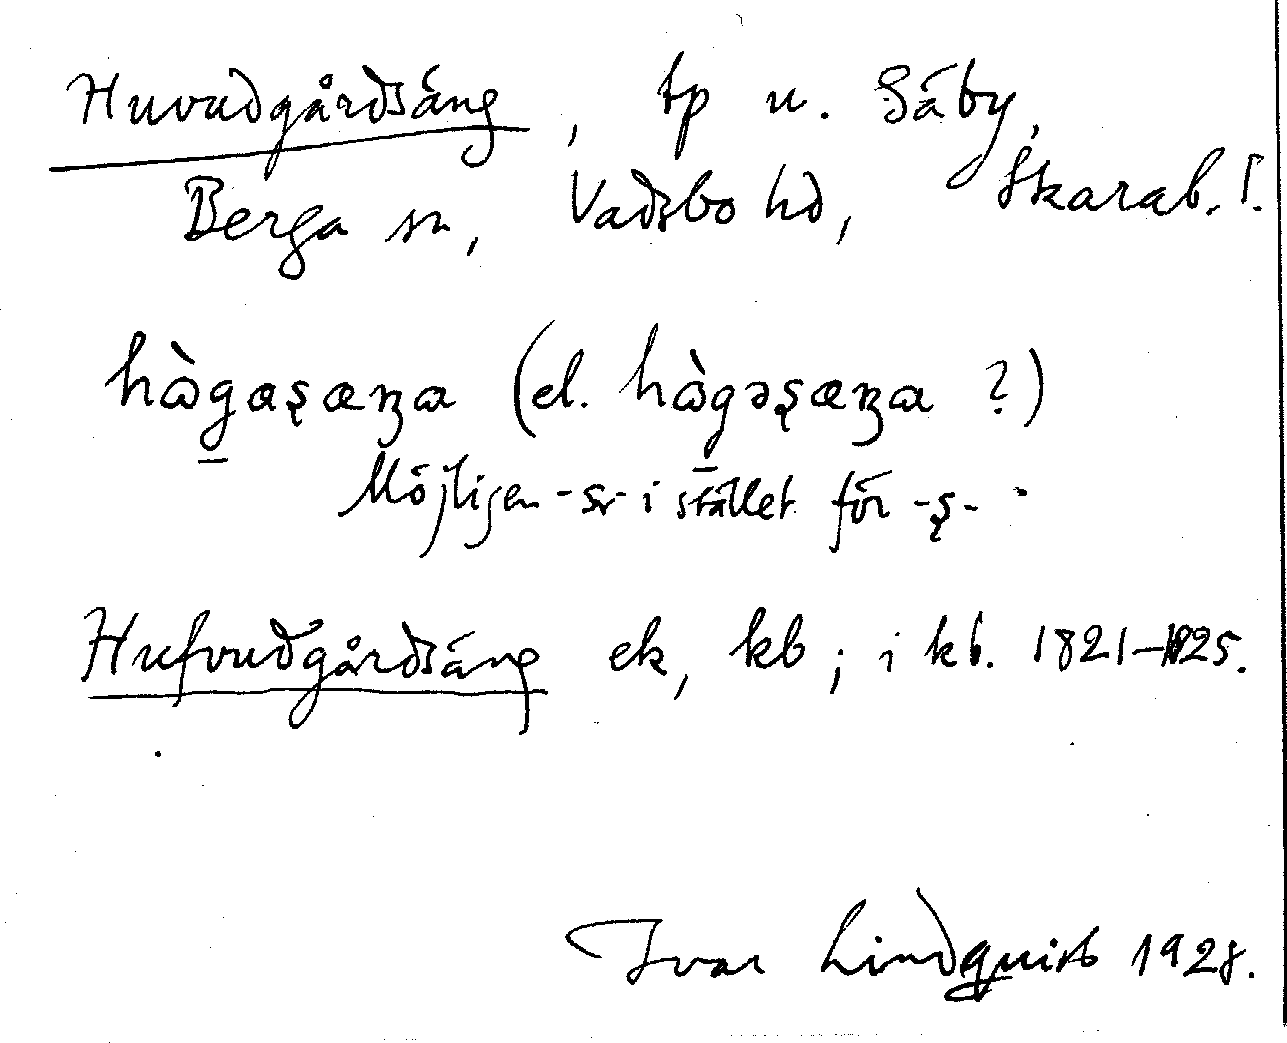 Huvudgårdsäng, tp u. Säby,
Berga sn, Vadsbo hd, Skarab. l.
hàgaʂæŋa (el. hàgəʂæŋa ?)
Möjligen -sr- i stället för -ʂ-.
Hufvudgårdsäng ek, kb; i kb. 1821–1825.
Ivar Lindquist 1928.